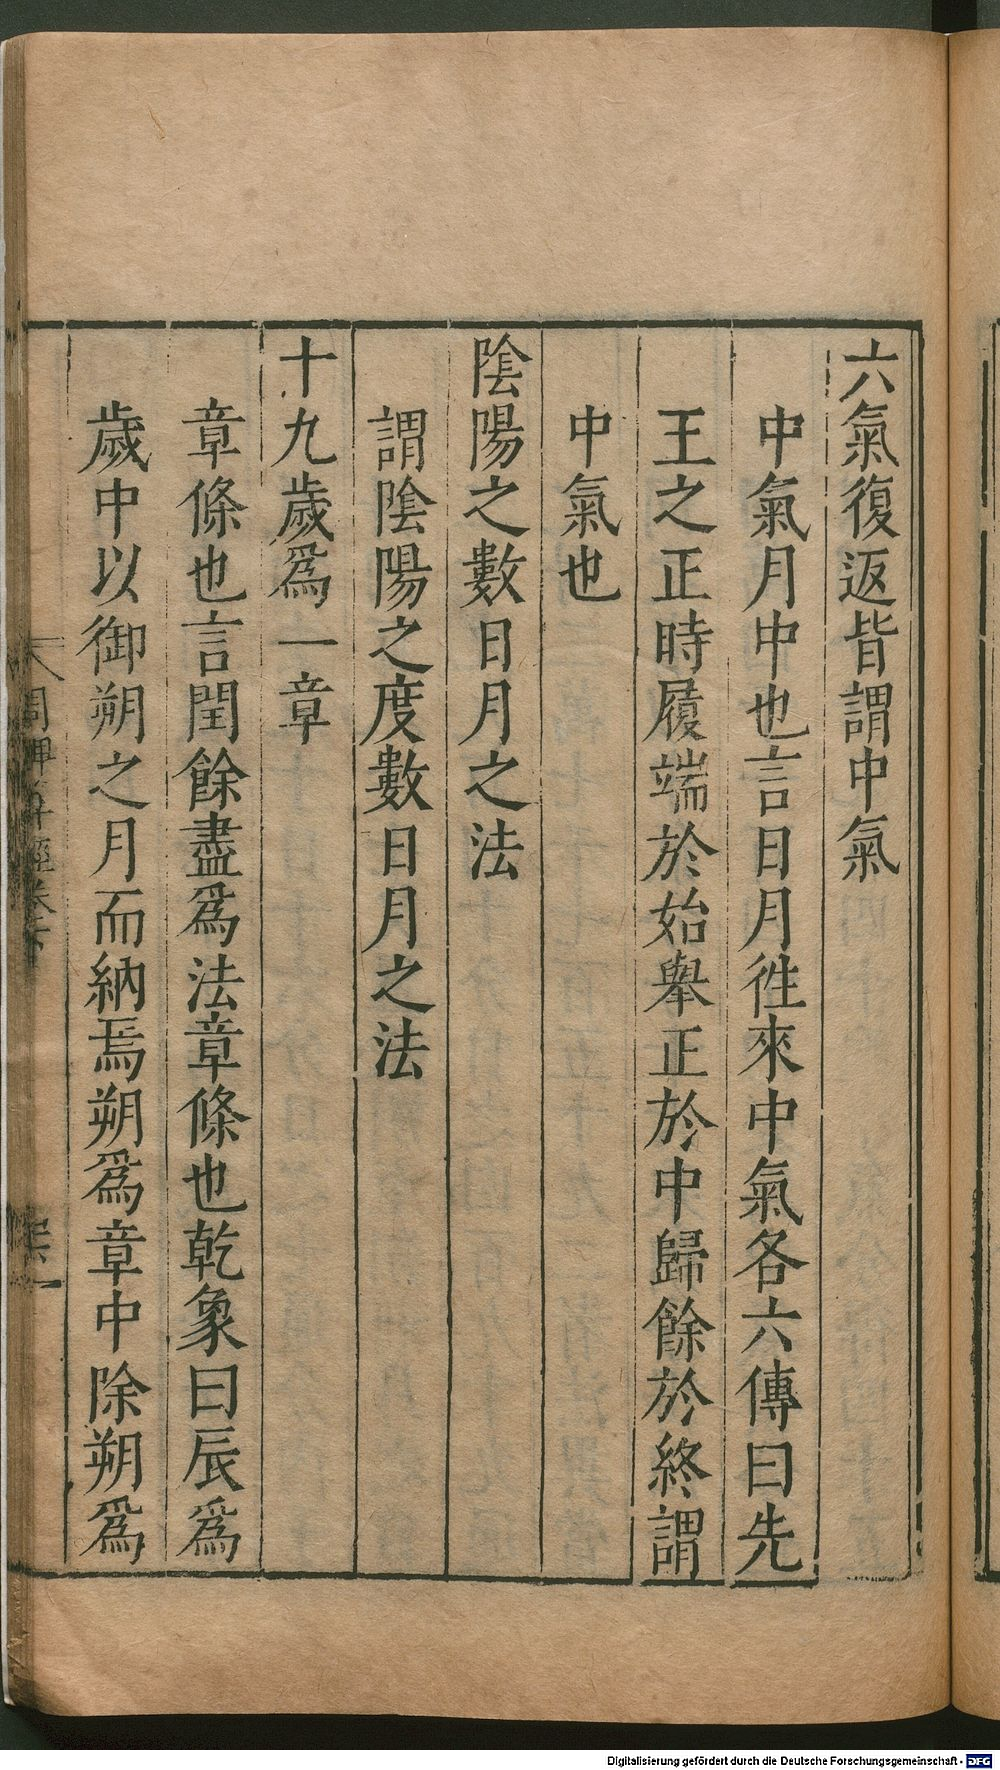 六氣復返皆謂中氣
中氣月中也言日月徃來中氣各六傳曰先
王之正時履端於始舉正於中歸餘於終謂
中氣也
陰陽之數日月之法
謂陰陽之度數日月之法
十九歲爲一章
章條也言閏餘盡爲法章條也乾象曰辰爲
歲中以御朔之月而納焉朔爲章中除朔爲
周髀算經卷下
Digitalisierung gefördert durch die Deutsche Forschungsgemeinschaft - DFG